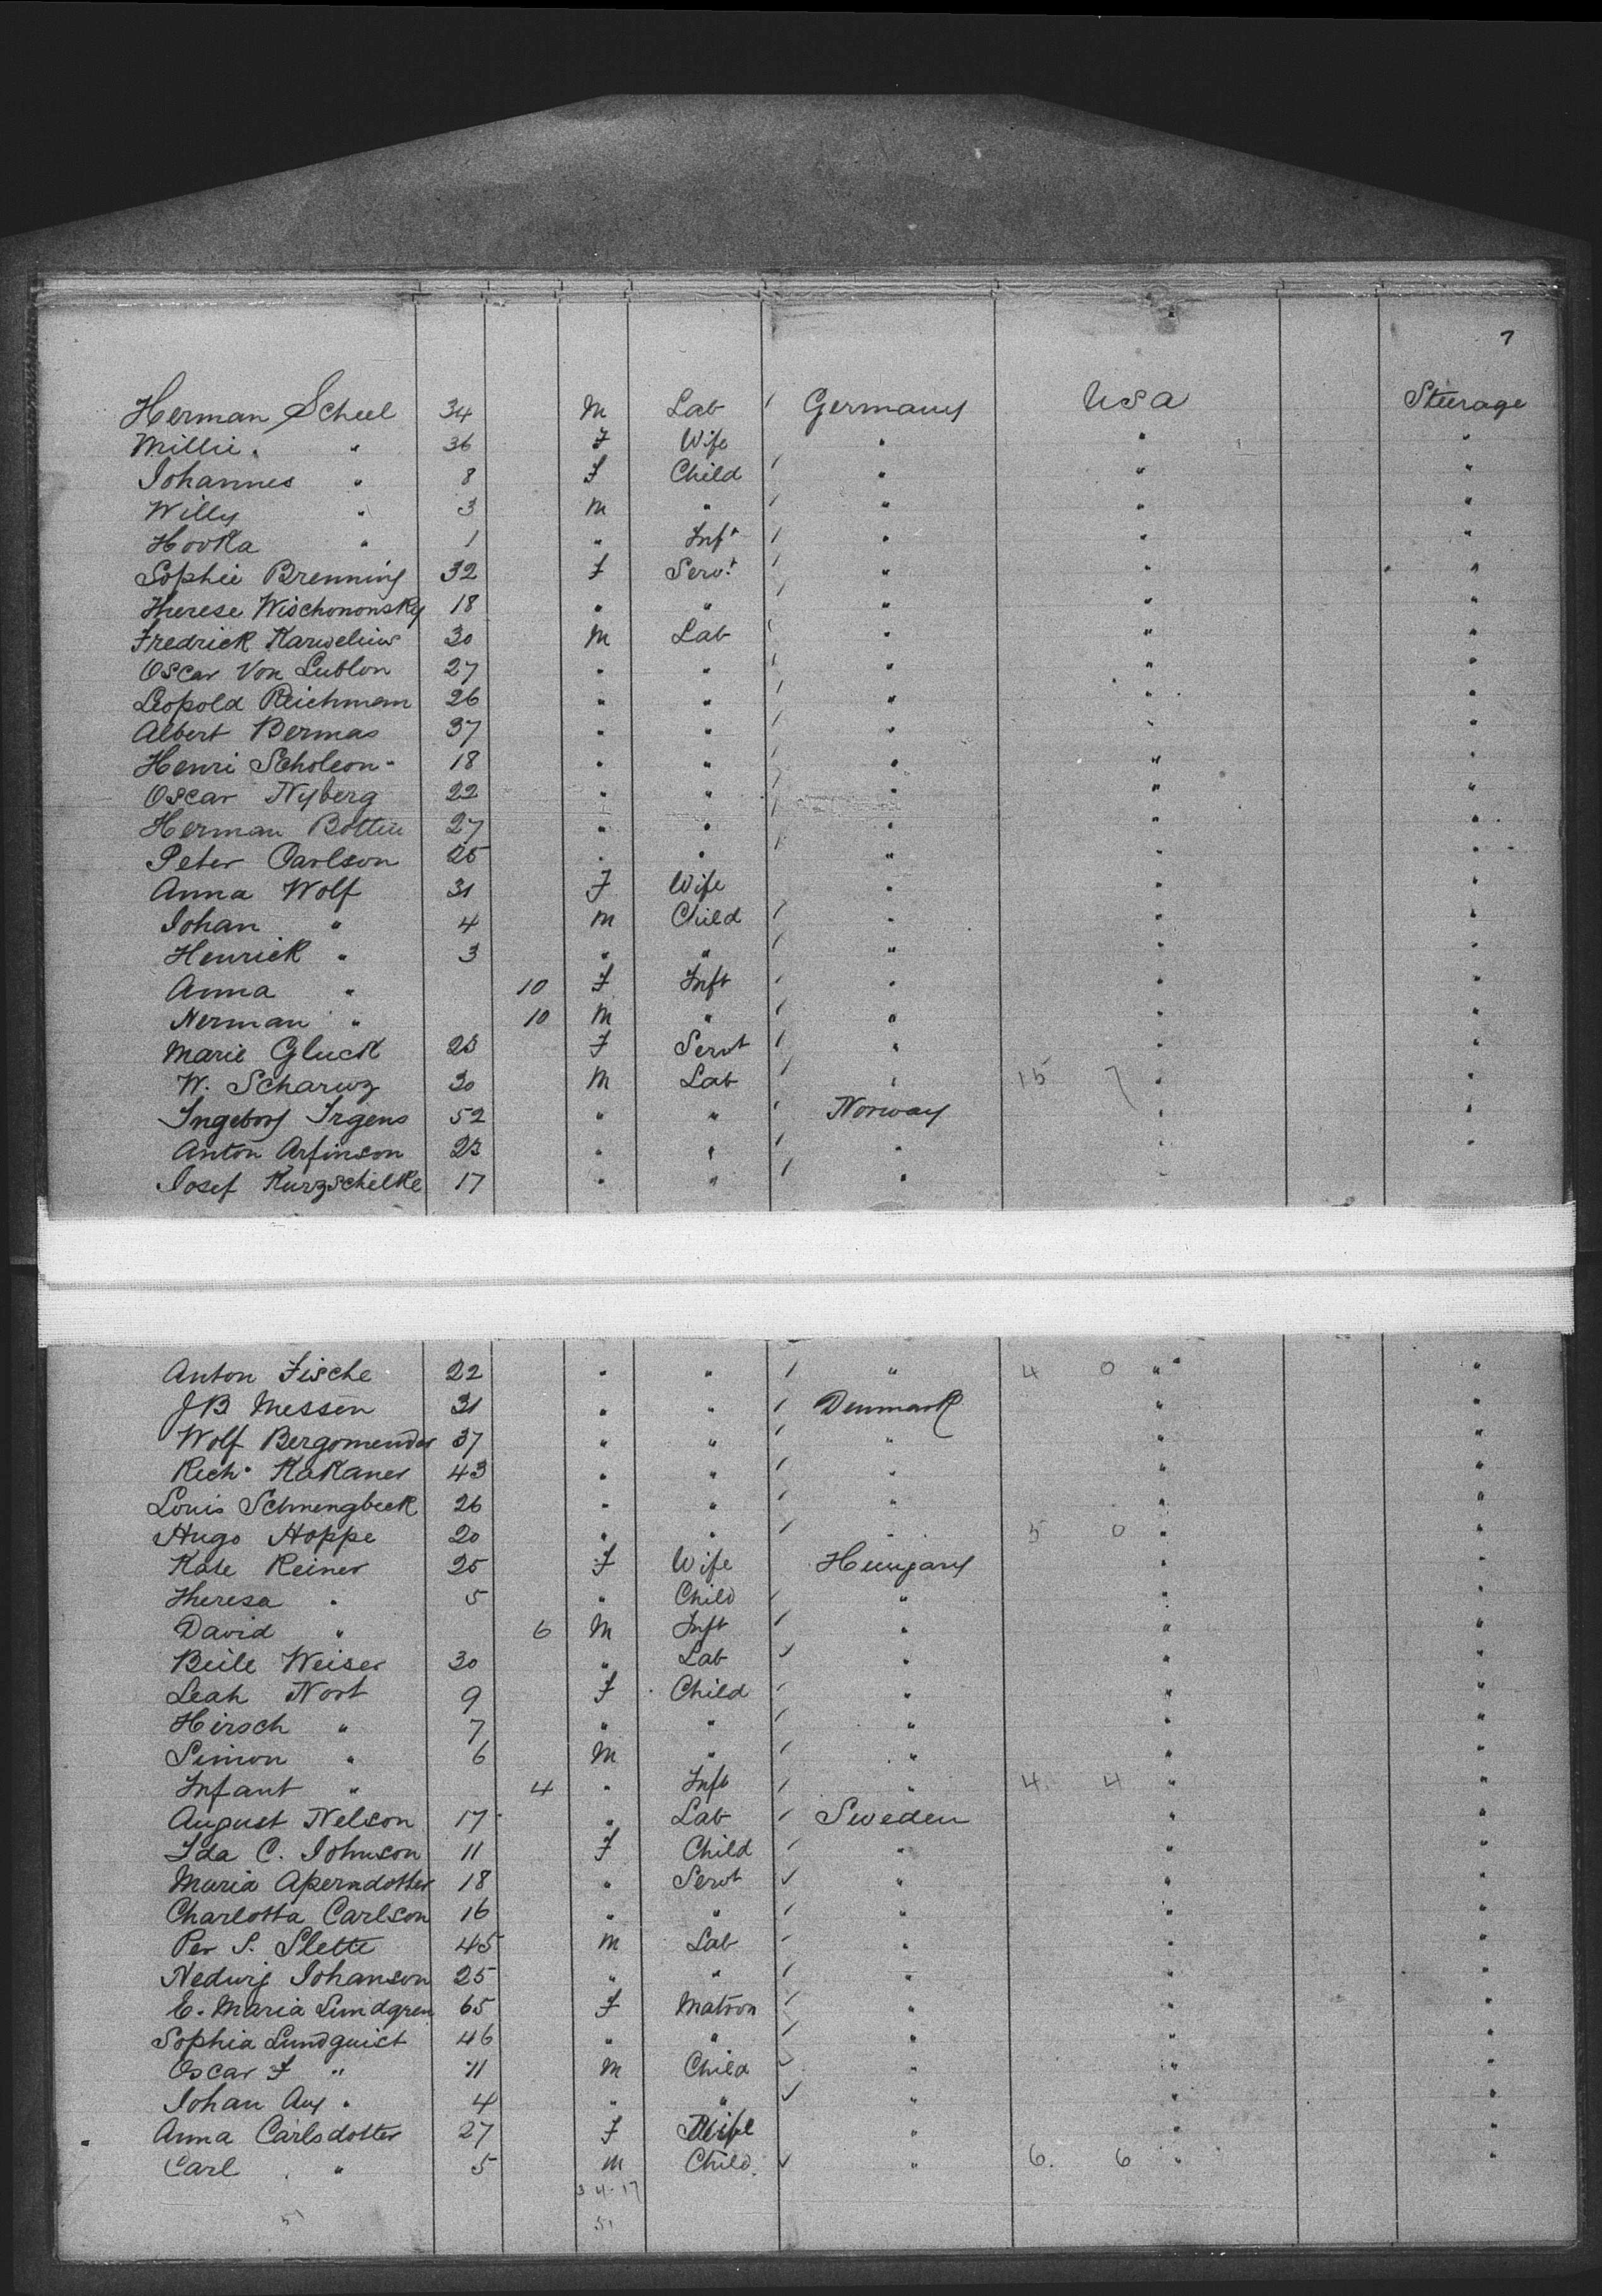 7
Herman Scheel 34 M Lab Germany USA Steerage
Millie " 36 F Wife " " "
Johannes " 8 F Child " " "
Willy " 3 M " " " "
Hovka " 1 " Inft " " "
Sophie Brenning 32 F Servt " " "
Therese Wischononsky 18 " " " " "
Fredrick Karwelius 30 M Lab " " "
Oscar Von Lublon 27 " " " " "
Leopold Reichmann 26 " " " " "
Albert Bermas 37 " " " " "
Henri Scholeon 18 " " " " "
Oscar Nyberg 22 " " " " "
Herman Bottin 27 " " " " "
Peter Carlson 25 " " " " "
Anna Wolf 31 F Wife " " "
Johan " 4 M Child " " "
Henrick " 3 " " " " "
Anna " 10 F Inft " " "
Nerman " 10 M " " " "
Marie Gluck 23 F Servt " " "
W. Scharwz 30 M Lab " 15 7 " "
Ingeborg Irgens 52 " " Norway " "
Anton Arfinson 23 " " " " "
Josef Kurzschelke 17 " " " "
Anton Fische 22 " " " 4 0 " "
JB Messen 31 " " Denmark " "
Wolf Bergomender 37 " " " " "
Rich. KaKaner 43 " " " " "
Louis Schnengbeck 26 " " " " "
Hugo Hoppe 20 " " " 5 0 " "
Kate Reiner 25 F Wife Hungary " "
Theresa " 5 " Child " " "
David " 6 M Inft " " "
Beile Weiser 30 " Lab " " "
Leah Nort 9 F Child " " "
Hirsch " 7 " " " " "
Simon " 6 M " " " "
Infant " 4 " Inft " 4. 4 " "
August Nelson 17 " Lab Sweden " "
Ida C. Johnson 11 F Child " " "
Maria Aperndotter 18 " Servt " " "
Charlotta Carlson 16 " " " " "
Per S. Slette 45 M Lab " " "
Nedwig Johanson 25 " " " " "
E. Maria Lundgren 65 F Matron " " "
Sophia Lundquist 46 " " " " "
Oscar F " 11 M Child " " "
Johan Aug " 4 " " " " "
Anna Carlsdotter 27 F Wife " " "
Carl " 5 M Child " 6. 6 " "
34-17
51 51